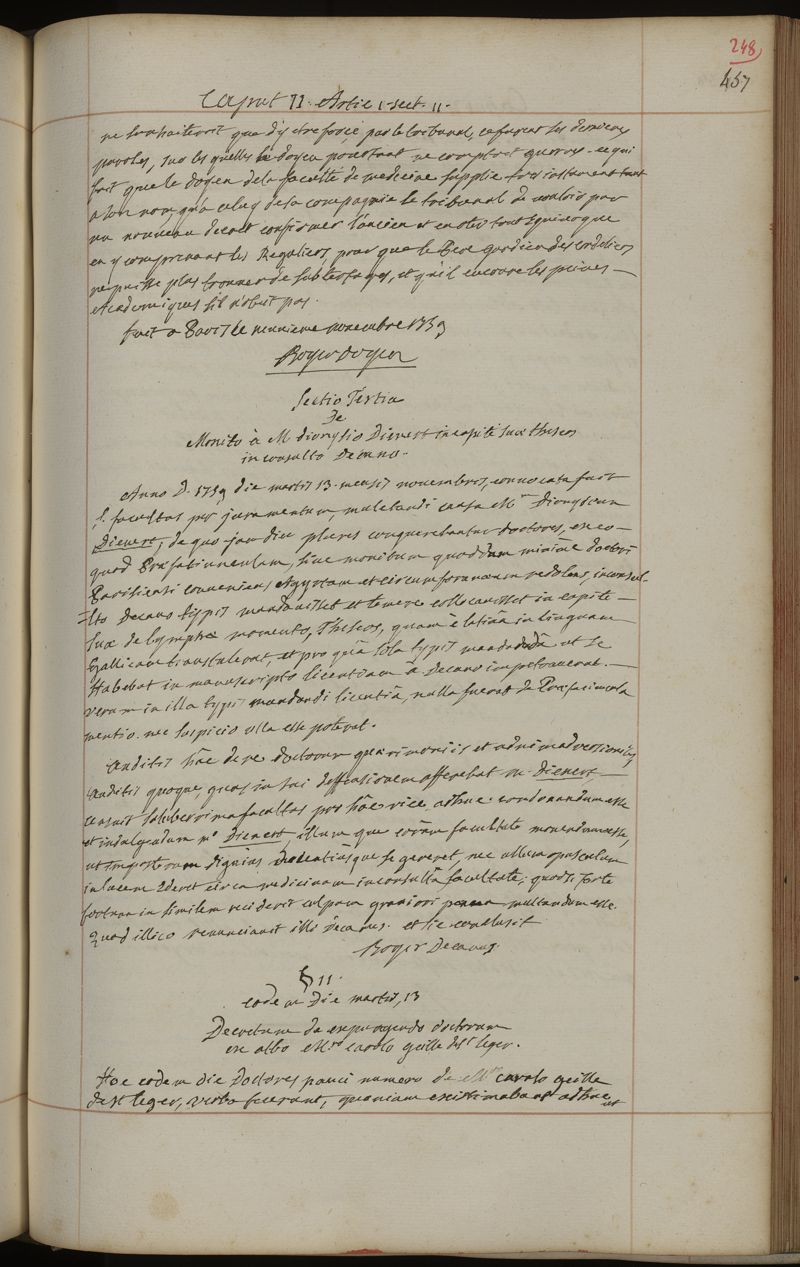 248
457
Caput II. Artic 1. sect. 11.
ne souhaiteroit que d'y etre forcé par le tribunal, ce furent ses derniers
paroles, sur lesquelles le doyen pourtant ne comptoit gueres. ce qui
fait que le doyen de la faculté de medecine supplie tres instamment tant
a son nom qu'a celuy de sa compagnie le tribunal de vouloir par
un nouveau decret confirmer l'ancien et en oter tout equivoque
en y comprenant les Reguliers, pour que le Pere gardien des cordeliers
ne puisse plus trouver de subterfuges, et qu'il encoure les peines
Academiques s'il n'obeit pas.
fait a Paris le neuvieme novembre 1759
Boyer doyen
Sectio Tertia
De
Monito à M. dionysio Dienert in capite suæ theseos
inconsulto Decano.
Anno D. 1759 die martis 13. mensis novembris, convocata fuit
S. facultas per juramentum, mulctandi causa Mum Dionysium
Dienert, de quo jam diu plures conquerebantur doctores, ex eo
quod Præfatiunculam, sive monitum quoddam minimè doctori
Parisiensi conveniens, Agyrtam et circumforaneum redolens, inconsul-
=lto Decano typis mandavisset et temere collocavisset in capite
suæ de lymphæ momento, Theseos, quam è latina in linguam
Gallicam transtulerat, et pro quâ solâ typis mandandâ ut se
Habebat in manuscripto licentiam à Decano impetraverat.
verum in illa typis mandandi licentiâ, nulla fuerat de Præfatiuncula
mentio. nec suspicio ulla esse poterat.
Auditis hâc de re doctorum querimoniis et adnimadversionibus
Auditis quoque, quas in sui deffensionem afferebat M. Dienert
censuit saluberrima facultas pro hâc vice, adhuc condonandum esse
et indulgendum Mo Dienert, illum que coràm facultate monendum esse,
ut imposterum dignius decentiùsque se gereret, nec ullum opusculum
in lucem ederet circa medicinam inconsultâ facultate; quodsi forte
fortuna in similem reciderit culpam graviori poena mulctandum esse.
Quod illico renunciavit illi Decanus. et sic conclusit
Boyer Decanus
§ 11.
eodem Die martis, 13
Decretum de expungendo doctorum
ex albo Mro carolo geille de St leger.
Hoc eodem die Doctores pauci numero de Mro carolo geille
de St leger, verba fecerunt, quoniam existimabant adhuc
ut